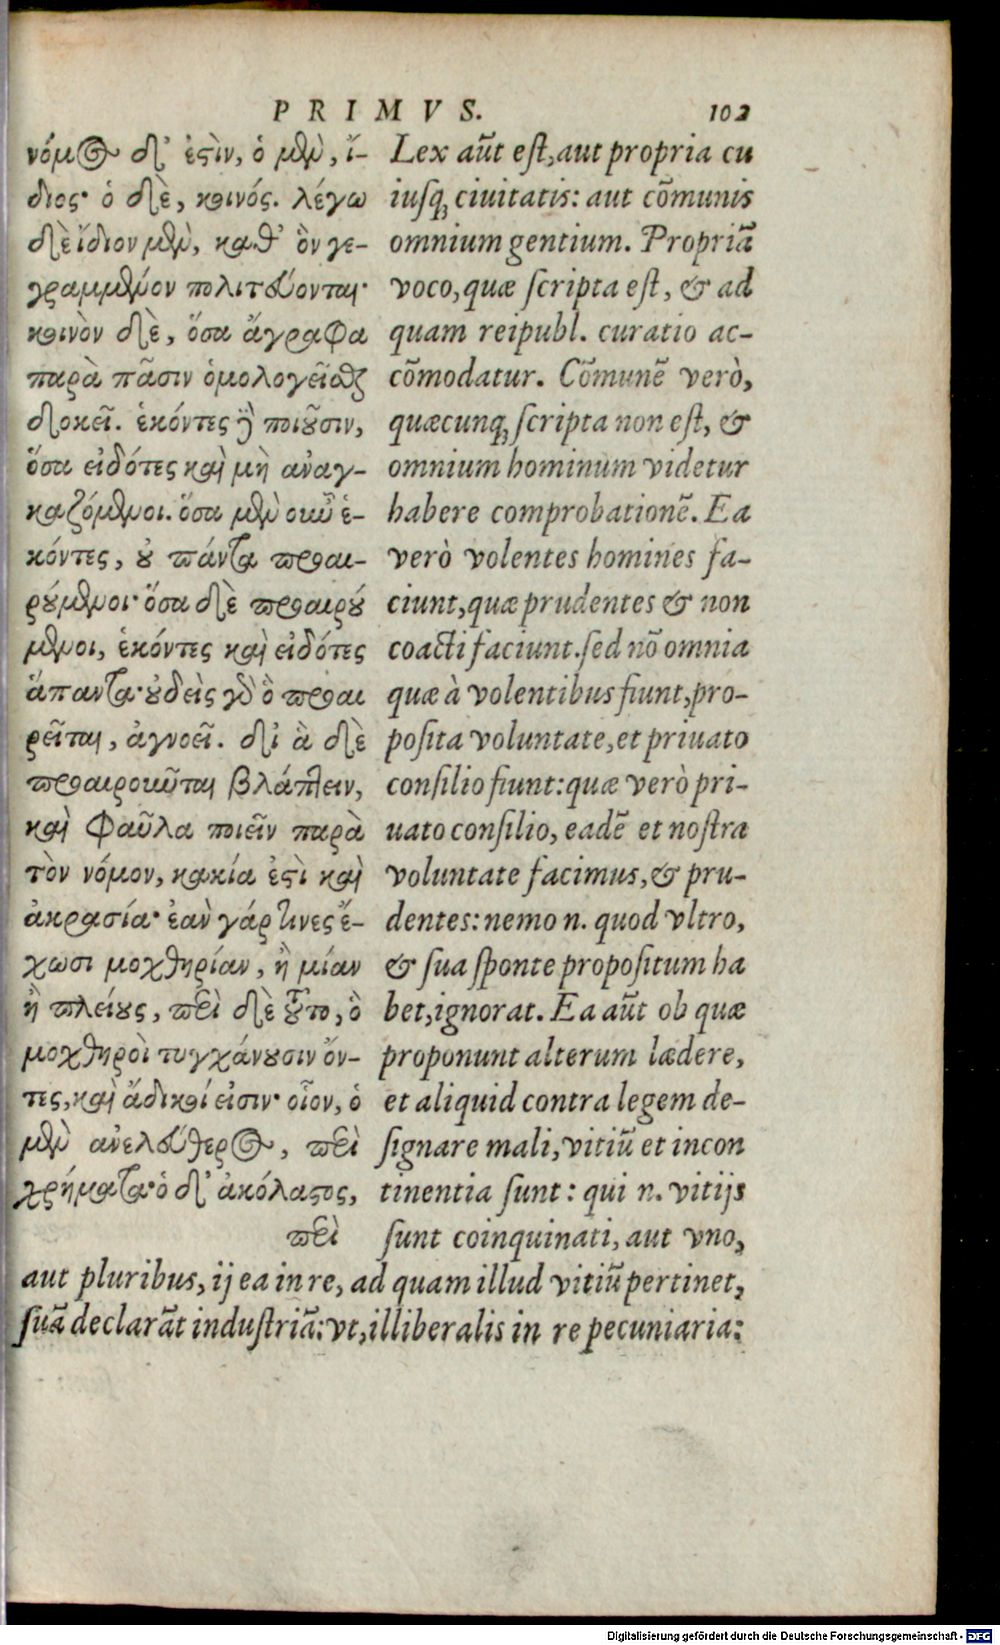 PRIMVS. 102
νόμος δ' ἐστὶν, ὁ μὲν, ἴ-
διος· ὁ δὲ, κοινός. λέγω
δὲ ἴδιον μὲν, καθ' ὃν γε-
γραμμένον πολιτεύονται·
κοινὸν δὲ, ὅσα ἄγραφα
παρὰ πᾶσιν ὁμολογεῖσθαι
δοκεῖ. ἑκόντες δὲ ποιοῦσιν,
ὅσα εἰδότες καὶ μὴ ἀναγ-
καζόμενοι. ὅσα μὲν οὖν ἑ-
κόντες, οὐ πάντα προαι-
ρούμενοι· ὅσα δὲ προαιρού
μενοι, ἑκόντες καὶ εἰδότες
ἅπαντα· οὐδεὶς γὰρ ὃ προαι
ρεῖται, ἀγνοεῖ. δι' ἃ δὲ
προαιροῦνται βλάπτειν,
καὶ φαῦλα ποιεῖν παρὰ
τὸν νόμον, κακία ἐστὶ καὶ
ἀκρασία· ἐὰν γάρ τινες ἔ-
χωσι μοχθηρίαν, ἢ μίαν
ἢ πλείους, περὶ δὲ τοῦτο, ὃ
μοχθηροὶ τυγχάνουσιν ὄν-
τες, καὶ ἄδικοί εἰσιν· οἷον, ὁ
μὲν ἀνελεύθερος, περὶ
χρήματα· ὁ δ' ἀκόλαστος,
περὶ
Lex aũt est, aut propria cu
iusq; ciuitatis: aut cõmunis
omnium gentium. Propriã
voco, quæ scripta est, & ad
quam reipubl. curatio ac-
cõmodatur. Cõmunẽ verò,
quæcunq; scripta non est, &
omnium hominum videtur
habere comprobationẽ. Ea
verò volentes homines fa-
ciunt, quæ prudentes & non
coacti faciunt. sed nõ omnia
quæ à volentibus fiunt, pro-
posita voluntate, et priuato
consilio fiunt: quæ verò pri-
uato consilio, eadẽ et nostra
voluntate facimus, & pru-
dentes: nemo n. quod vltro,
& sua sponte propositum ha
bet, ignorat. Ea aũt ob quæ
proponunt alterum lædere,
et aliquid contra legem de-
signare mali, vitiũ et incon
tinentia sunt: qui n. vitijs
sunt coinquinati, aut vno,
aut pluribus, ij ea in re, ad quam illud vitiũ pertinet,
suã declarãt industriã: vt, illiberalis in re pecuniaria:
Digitalisierung gefördert durch die Deutsche Forschungsgemeinschaft - DFG